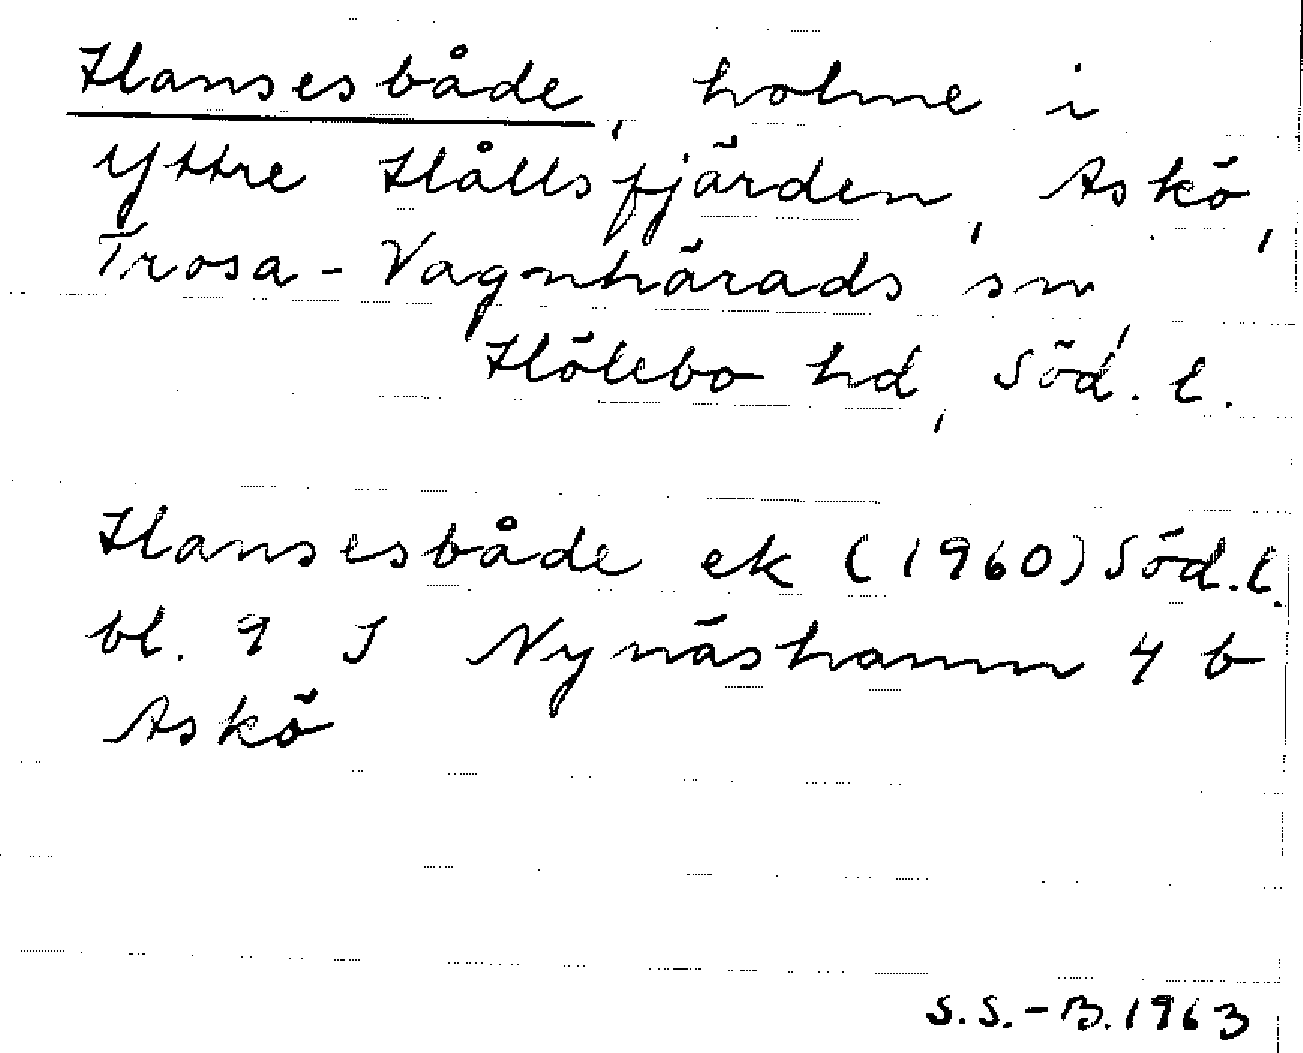 Hansesbåde, holme i
yttre Hållsfjärden, Askö,
Trosa-Vagnhärads sn,
Hölebo hd, Söd. l.
Hansesbåde ek (1960) Söd. l.
bl. 9 I Nynäshamn 4 b
Askö
S.S.-B. 1963